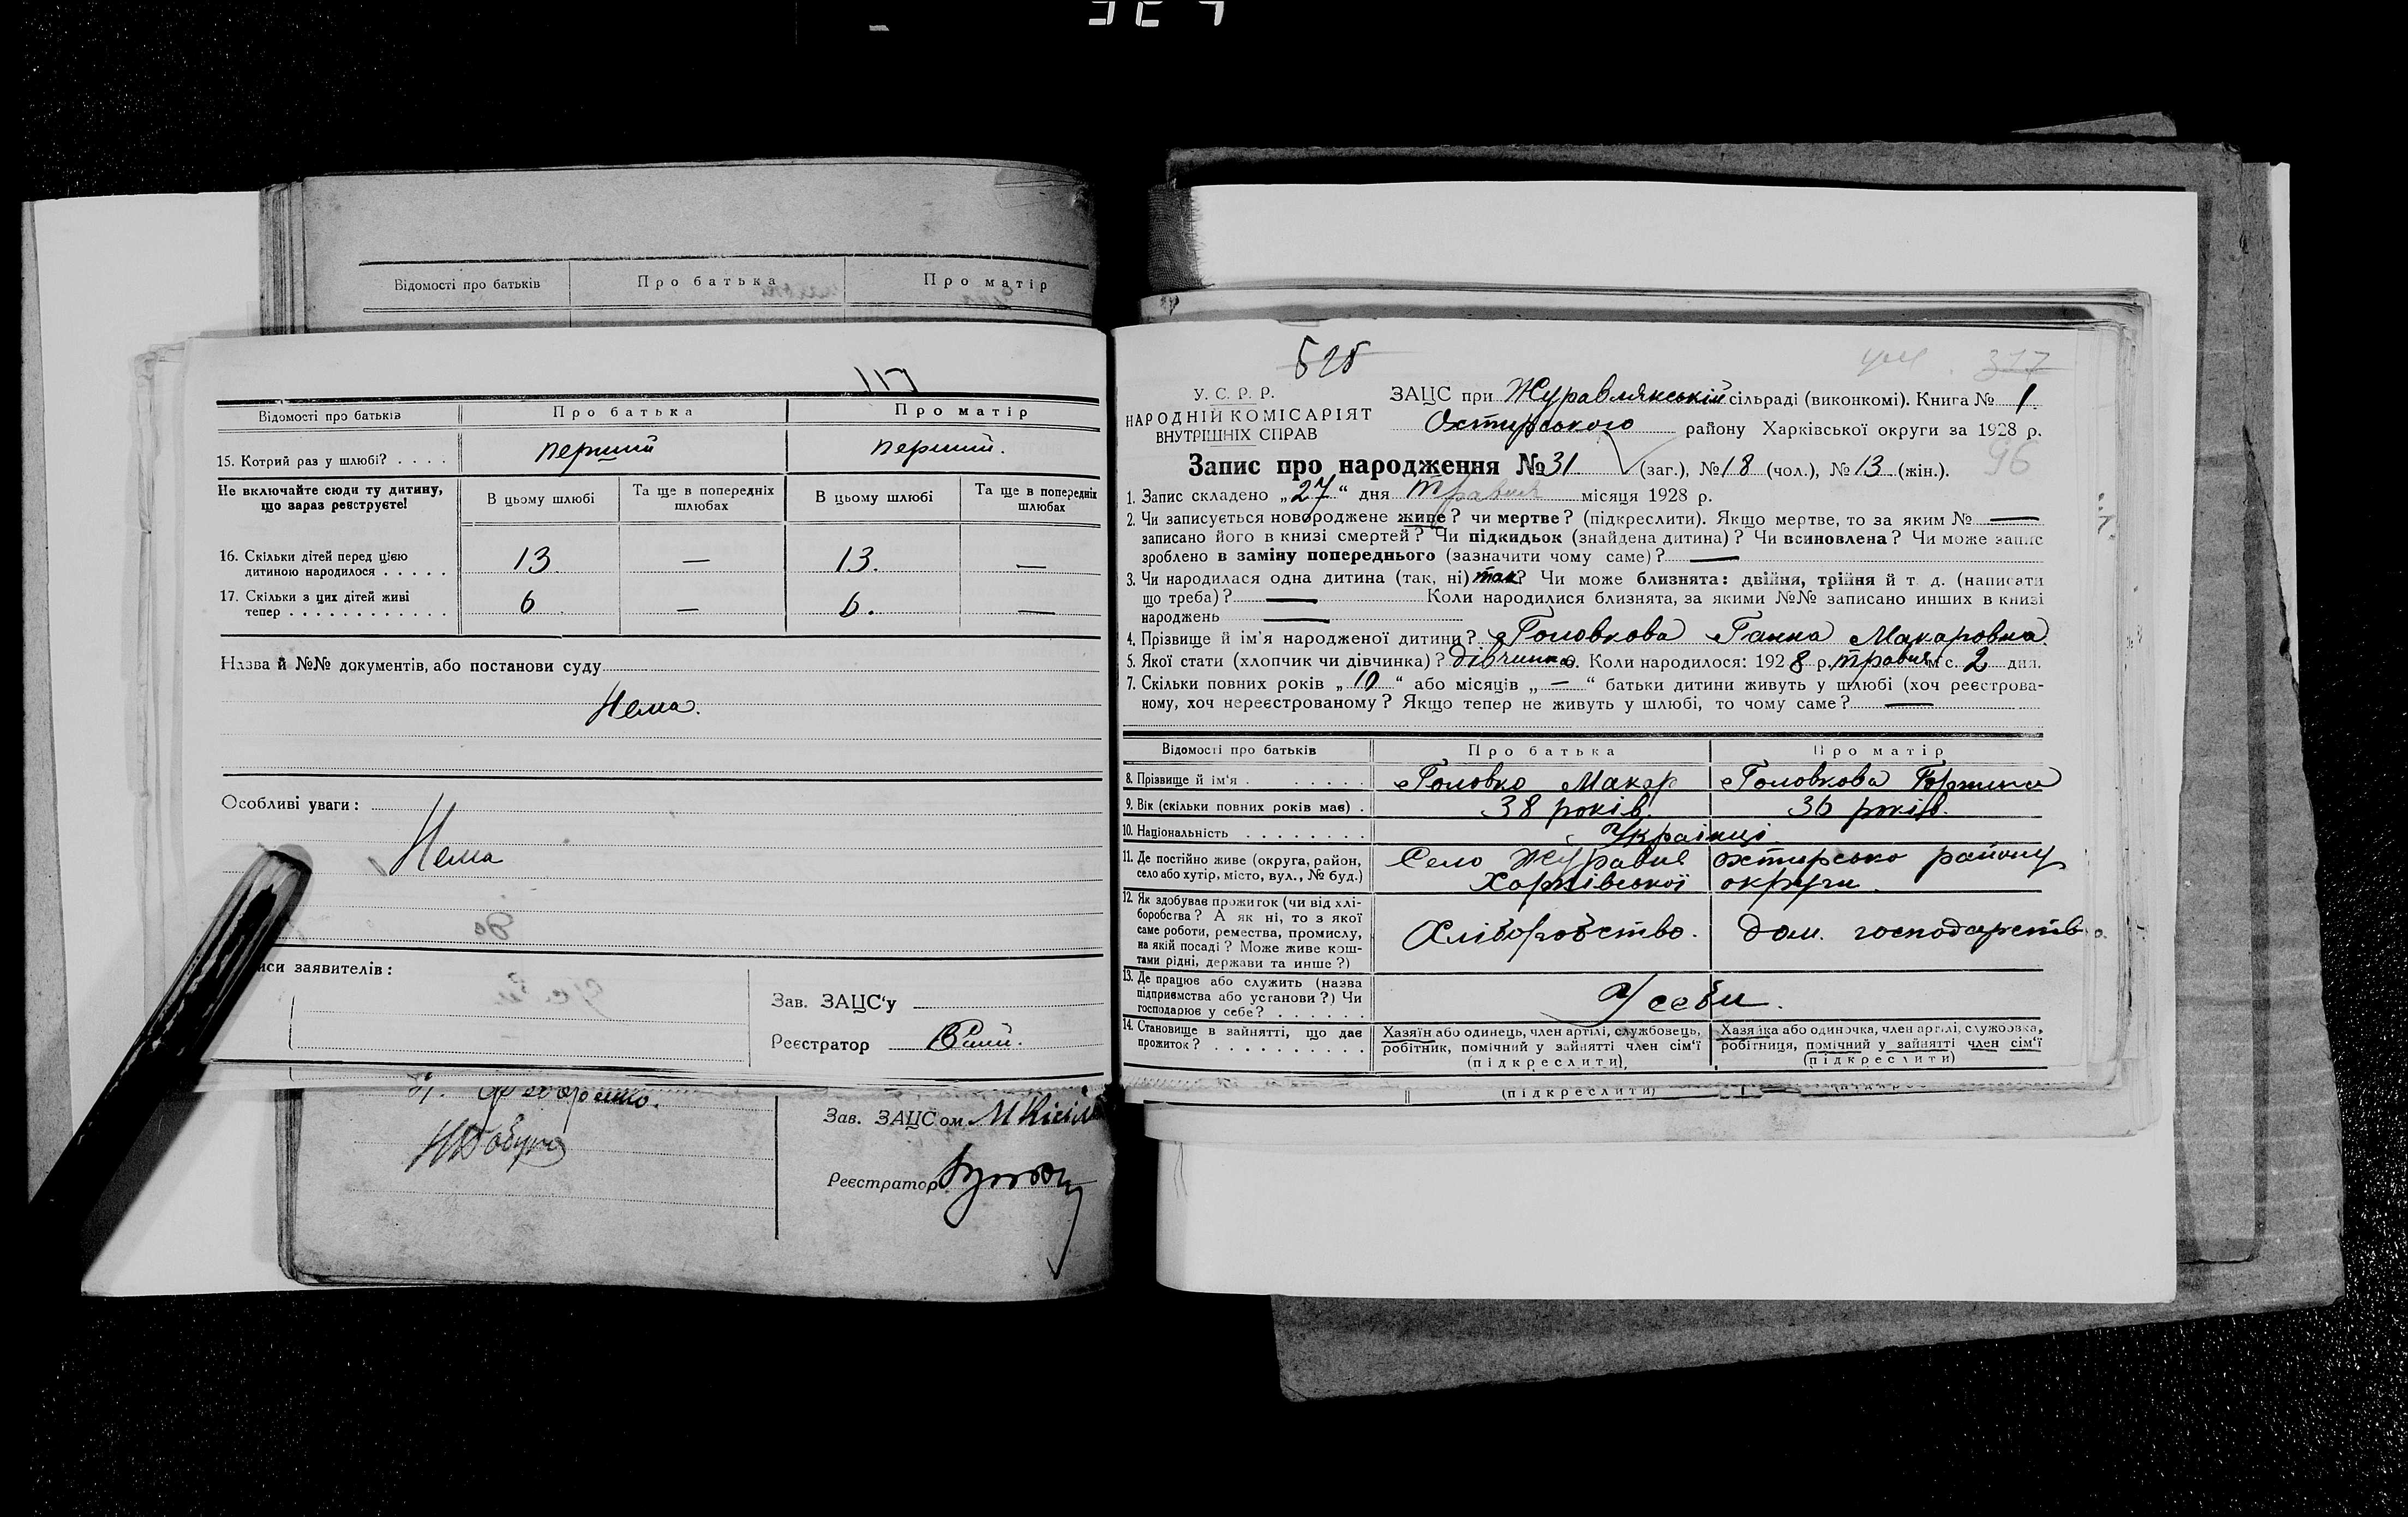 Відомості про батьків Про батька Про матір
117
Відомості про батьків Про батька Про матір
15. Котрий раз у шлюбі? . . . . перший перший.
Не включайте сюди ту дитину, що зараз реєструєте! В цьому шлюбі Та ще в попередніх шлюбах В цьому шлюбі Та ще в попередніх шлюбах
16. Скільки дітей перед цією
дитиною народилося . . . . . 13 — 13. —
17. Скільки з цих дітей живі
тепер . . . . . . . . . . . . 6 — 6. —
Назва й №№ документів, або постанови суду
Нема.
Особливі уваги:
Нема
заявителів:
Зав. ЗАЦС'у
Реєстратор
Зав. ЗАЦСом
Реєстратор
525
377
У. С. Р. Р.
НАРОДНІЙ КОМІСАРІЯТ
ВНУТРІШНІХ СПРАВ
ЗАЦС при Журавлянській сільраді (виконкомі). Книга № 1.
Охтирського району Харківської округи за 1928 р.
96
Запис про народження № 31 (заг.), № 18 (чол.), № 13 (жін.).
1. Запис складено „27“ дня травня місяця 1928 р.
2. Чи записується новороджене живе? чи мертве? (підкреслити). Якщо мертве, то за яким № —
записано його в книзі смертей? Чи підкидьок (знайдена дитина)? Чи всиновлена? Чи може запис
зроблено в заміну попереднього (зазначити чому саме)? —
3. Чи народилася одна дитина (так, ні) так? Чи може близнята: двійня, трійня й т. д. (написати
що треба)? — Коли народилися близнята, за якими №№ записано инших в книзі
народжень —
4. Прізвище й ім'я народженої дитини? Головкова Ганна Макаровна
5. Якої стати (хлопчик чи дівчинка)? дівчинка. Коли народилося: 1928 р. травня міс. 2 дня.
7. Скільки повних років „10“ або місяців „—“ батьки дитини живуть у шлюбі (хоч реєстрова-
ному, хоч нереєстрованому? Якщо тепер не живуть у шлюбі, то чому саме? —
Відомості про батьків Про батька Про матір
8. Прізвище й ім'я . . . . . . Головко Макар Головкова
9. Вік (скільки повних років має) . 38 років. 36 років.
10. Національність . . . . . . . . Українці
11. Де постійно живе (округа, район, Село Журавне Охтирсько району
село або хутір, місто, вул., № буд.) Харківської округи.
12. Як здобуває прожиток (чи від хлі-
боробства? А як ні, то з якої
саме роботи, ремества, промислу,
на якій посаді? Може живе кош-
тами рідні, держави та инше?)
Хліборобство. дом. господарство.
13. Де працює або служить (назва
підприємства або установи?) Чи
господарює у себе? . . . . . .
У себи.
14. Становище в зайнятті, що дає
прожиток? . . . . . . . . . .
Хазяїн або одинець, член артілі, службовець,
робітник, помічний у зайнятті член сім'ї
(підкреслити)
Хазяйка або одиночка, член артілі, службовка,
робітниця, помічний у зайнятті член сім'ї
(підкреслити)
(підкреслити)